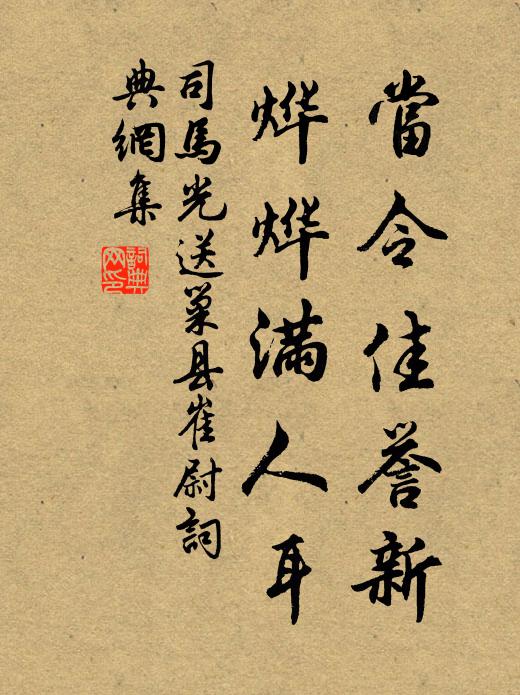 當令佳誉新
烨烨满人耳
司馬光送巢县崔尉詞
典網集
詞典网印